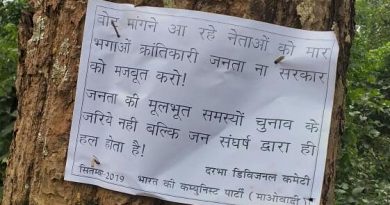 वोट मांगने आ रहे नेताओं को मार
भगाओं क्रांतिकारी जनता ना सरकार
को मजबूत करो!
जनता की मूलभूत समस्यों चुनाव के
जरिये नही बल्कि जन संघर्ष द्वारा ही
हल होता है!
दरभा डिविजनल कमेटी
सितम्बर 2019 भारत की कम्युनिस्ट पार्टी (माओवादी)